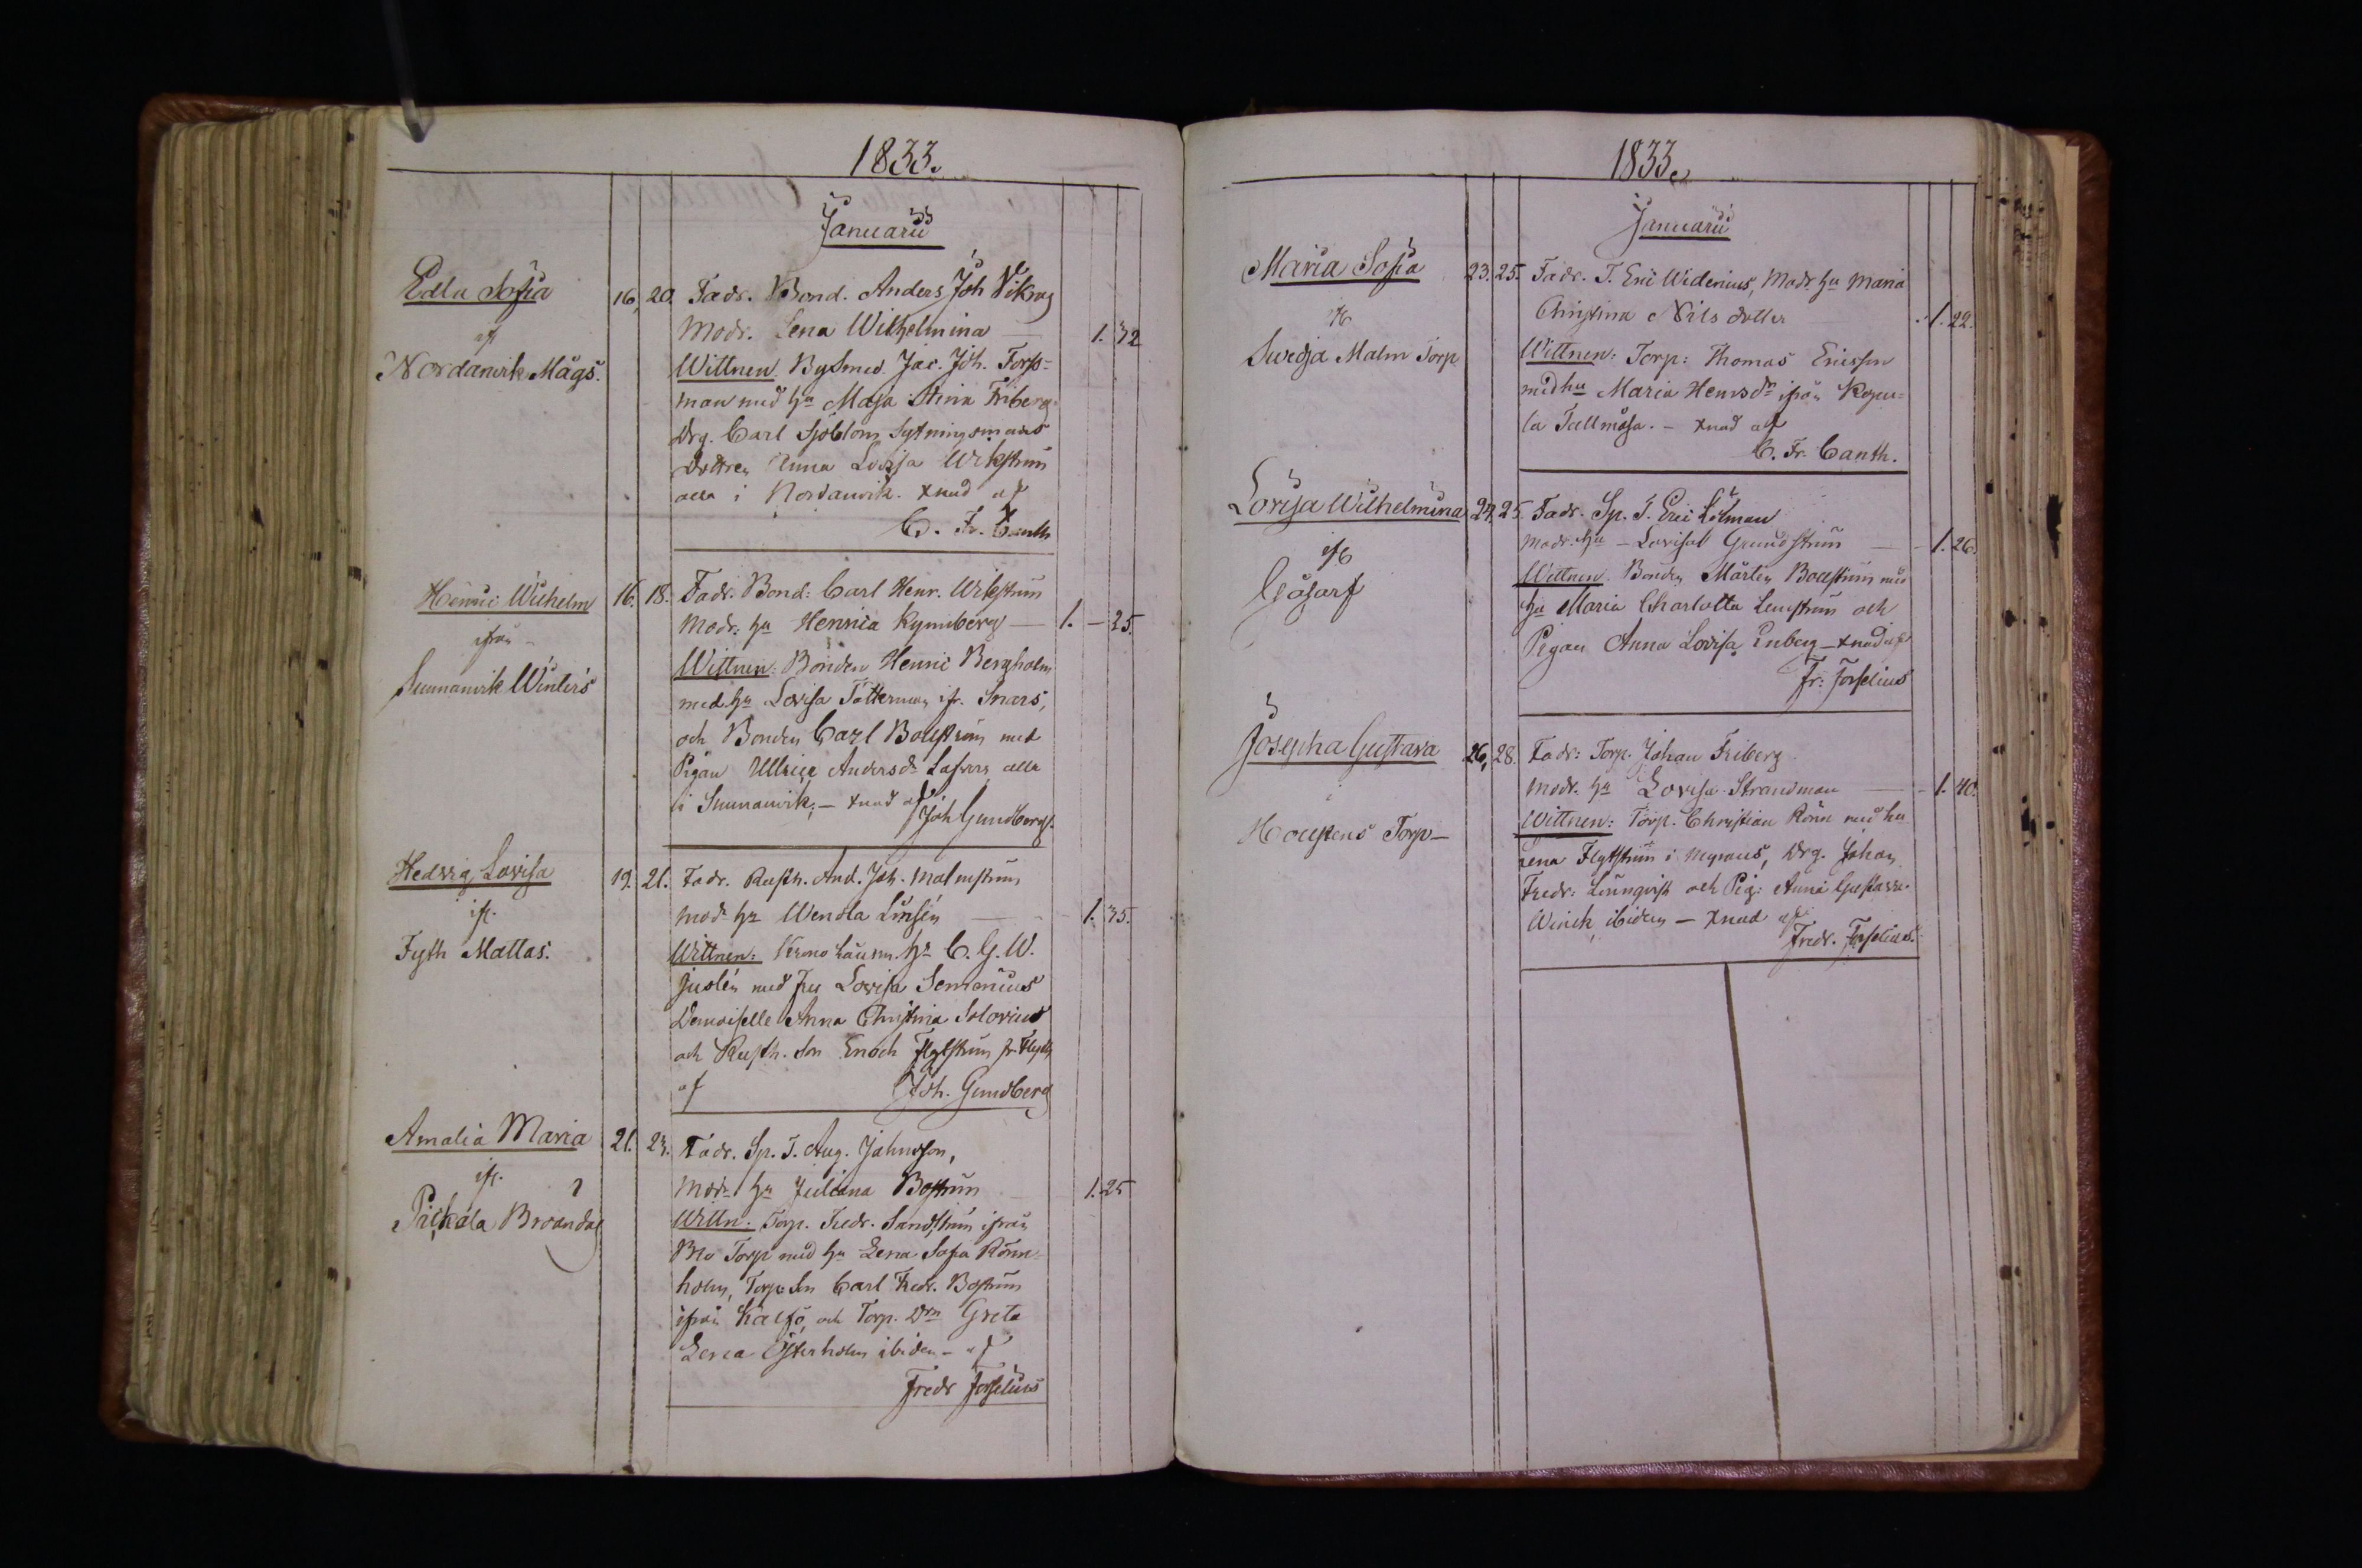 1833.
Januarii
Edla Sofia 16, 20. Fadr. Bond. Anders Joh Vikrag
ifr
Modr. Lena Wilhelmina — 1. 32
Nordanvik Mågs.
Wittnen. BySmed. Jac. Joh. Torp-
man med hu Maja Stina Friberg
Drg. Carl Sjöblom Sytningsmans
Dottren Anna Lovisa Wikström
alla i Nordanvik. xnad af
C. Fr. Canth
Henric Wilhelm 16. 18. Fadr. Bond: Carl Henr. Wikström
ifrån
Modr: hu Henrica Rymberg — 1. — 25.
Sunnanvik Winters
Wittnen: Bonden Henric Bergholm
med hu Lovisa Tötterman ifr. Snars,
och Bonden Carl Bollström med
Pigan Ullrica Andersdr alla
i Sunnanvik; — xnad af
Joh Gundberg.
Hedvig Lovisa 19. 21. Fadr. Rusth. And. Joh. Malmström
ifr.
Modr hu Wendla Linsén — 1. 35.
Fyth Mattas.
Wittnen: hr C. G. W.
Juslén med fru Lovisa Semenius
Demoiselle Anna Christina Solovius
och Rusth. Son Enoch Flytström
af Joh. Gundberg
Amalia Maria 21. 23. Fadr. Sp. T. Aug. Jahnsson,
ifr.
Modr hu Juliana Boström 1. 25
Päckala Broända
Wittn: Torp. Fredr. Sandström ifrån
Blo Torp med hu Lena Sofia Rönn-
holm, Torp. Son Carl Fredr. Boström
ifrån Kalfö, och Torp. Drn Greta
Lena Österholm ibidem — af
Fredr Forselius
1833.
Januarii
Maria Sofia 23. 25. Fadr. T. Eric Widenius, Modr hu Maria
ifr
Christina Nils dotter 1. 22.
Svedja Malm Torp
Wittnen: Torp: Thomas Ericsson
med hu Maria Henrsdr ifrån Kopu-
la Tallmåsa. — xnad af
C. Fr. Canth.
Lovisa Wilhelmina 24. 25. Fadr. Sp. T. Eric Lilman
ifr
Modr: hu — Lovisa Grundström — 1. 26.
Gåsarf
Wittnen. Bonden Mårten Bollström med
hu Maria Charlotta Lemström och
Pigan Anna Lovisa Enberg — xnad af
Fr: Forselius
Josepha Gustava 26, 28. Fadr: Torp. Johan Friberg
i
Modr. hu Lovisa Strandman — 1. 40.
Torp —
Wittnen: Torp. Christian Rönn med hu
Lena Flytström i Myrans, Drg. Johan
Fredr: Linnqvist och Pig: Anna Gustava
Winck ibidem — xnad af
Fredr. Forselius.